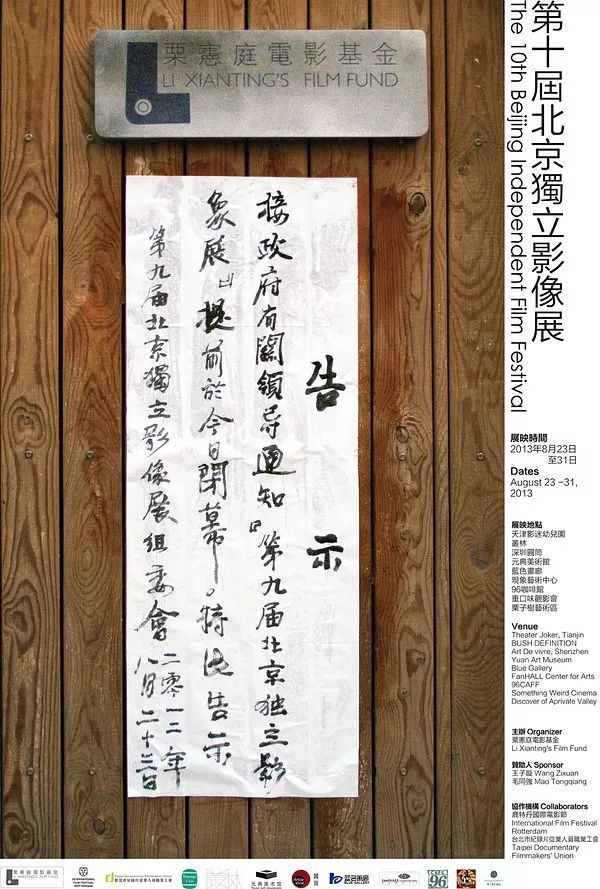 栗憲庭電影基金
LI XIANTING'S FILM FUND
告示
接政府有關領导通知『第九届北京独立影
象展』提前於今日閉幕。特此告示
第九届北京獨立影像展組委會
二零一二年
八月二十三日
第十屆北京獨立影像展
The 10th Beijing Independent Film Festival
展映時間
2013年8月23日
至31日
Dates
August 23 –31,
2013
展映地點
天津影迷幼兒園
叢林
深圳圓筒
元典美術館
藍色畫廊
現象藝術中心
96咖啡館
重口味觀影會
栗子樹藝術區
Venue
Theater Joker, Tianjin
BUSH DEFINITION
Art De vivre, Shenzhen
Yuan Art Museum
Blue Gallery
FanHALL Center for Arts
96CAFF
Something Weird Cinema
Discover of Aprivate Valley
主辦 Organizer
栗憲庭電影基金
Li Xianting's Film Fund
贊助人 Sponsor
王子璇 Wang Zixuan
毛同強 Mao Tongqiang
協作機構 Collaborators
鹿特丹國際電影節
International Film Festival
Rotterdam
台北市紀錄片從業人員職業工會
Taipei Documentary
Filmmakers' Union
栗憲庭電影基金
LI XIANTING'S FILM FUND
INTERNATIONAL
FILM FESTIVAL
ROTTERDAM
元典美术馆
96